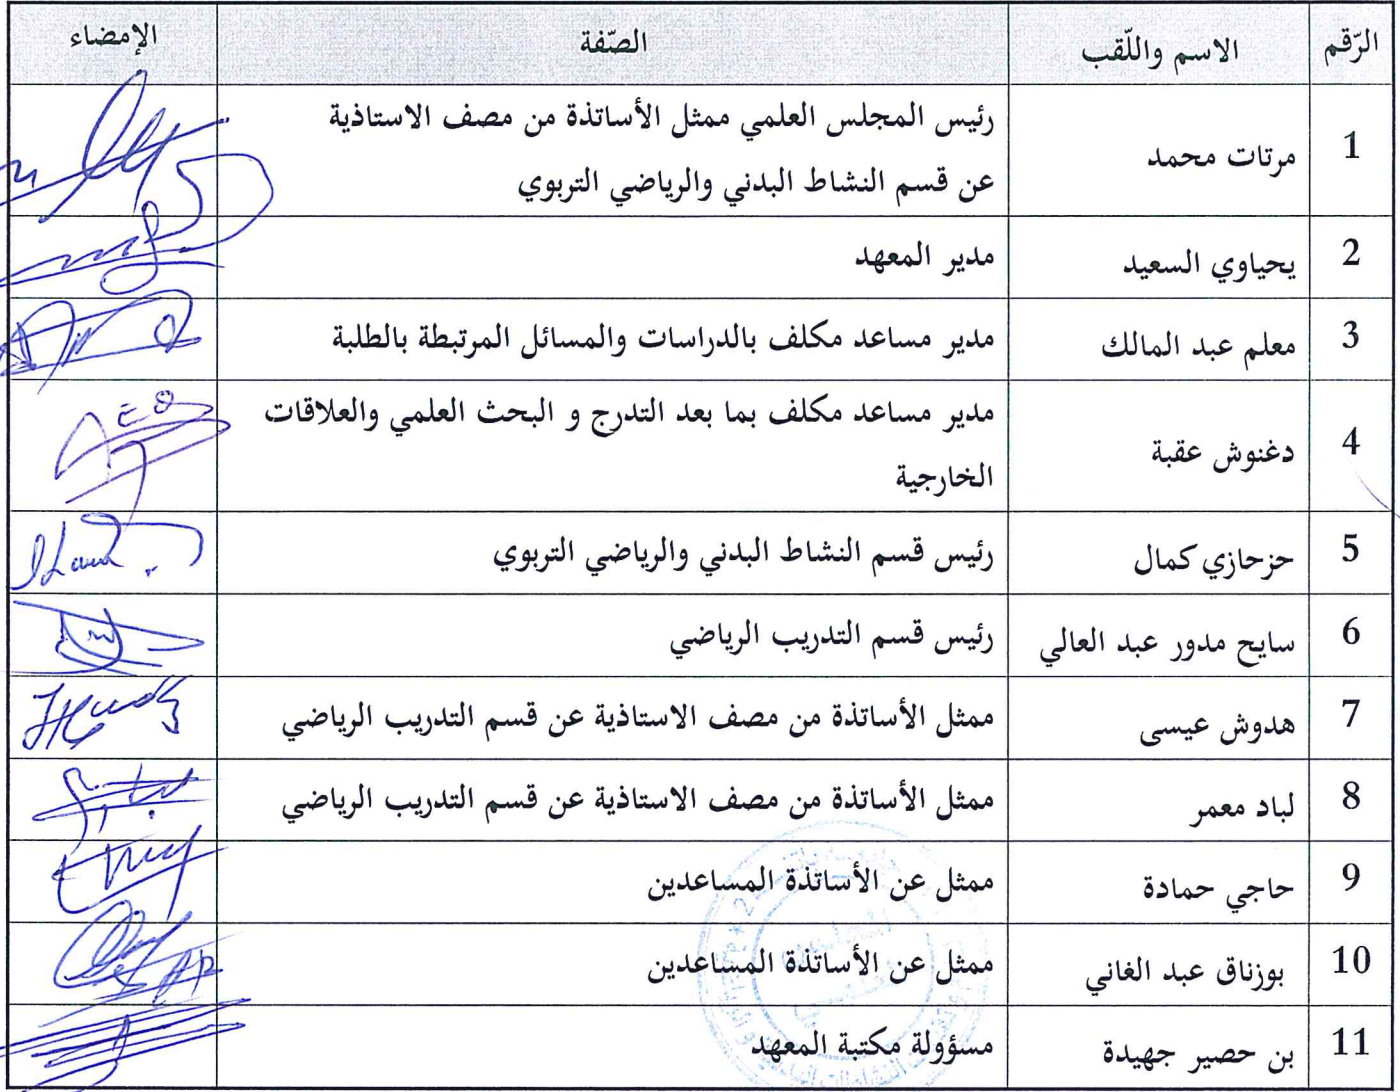 الرّقم الاسم واللّقب الصّفة الإمضاء
1 مرتات محمد رئيس المجلس العلمي ممثل الأساتذة من مصف الاستاذية
عن قسم النشاط البدني والرياضي التربوي
2 يحياوي السعيد مدير المعهد
3 معلم عبد المالك مدير مساعد مكلف بالدراسات والمسائل المرتبطة بالطلبة
4 دغنوش عقبة مدير مساعد مكلف بما بعد التدرج و البحث العلمي والعلاقات
الخارجية
5 حزحازي كمال رئيس قسم النشاط البدني والرياضي التربوي
6 سايح مدور عبد العالي رئيس قسم التدريب الرياضي
7 هدوش عيسى ممثل الأساتذة من مصف الاستاذية عن قسم التدريب الرياضي
8 لباد معمر ممثل الأساتذة من مصف الاستاذية عن قسم التدريب الرياضي
9 حاجي حمادة ممثل عن الأساتذة المساعدين
10 بوزناق عبد الغاني ممثل عن الأساتذة المساعدين
11 بن حصير جهيدة مسؤولة مكتبة المعهد